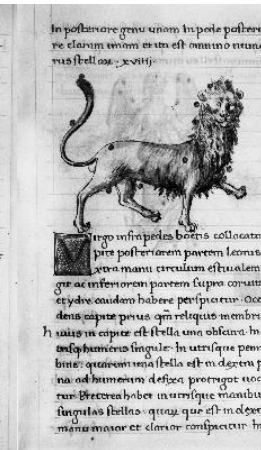 In posteriore genu unam In pede posteri
re claram unam et ita est omnino nume
rus stell xviiij
Virgo infra pedes bootis collocata
pite posteriorem partem Leonis
xtra manu circulum estiualem
git ac inferiorem partem supra corum
et ydre caudam habere perspicitur Occ
dens capite prius qm reliquis membri
h uius in capite est stella una obscura In
humeris singule In utrisque penn
bine quarum una stella est in dextra p
na ad humerum defixa protrigit uoc
tur Preterea habet in utrisque manibu
singulas stellas quar que est in dext
manu maior et clarior conspicitur In